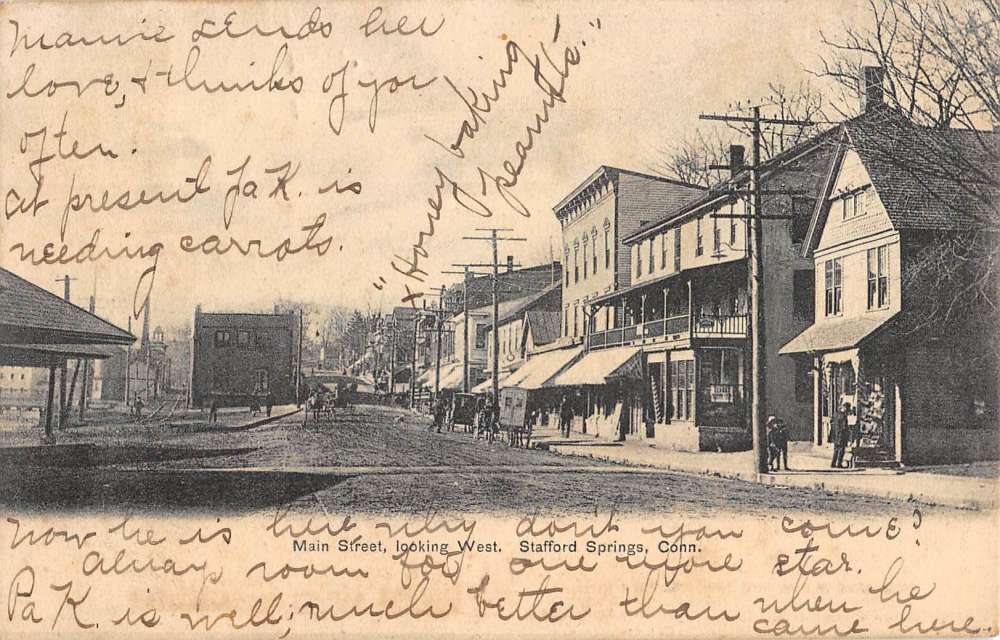 Mamie sends her
love, & thinks of you
often.
At present Pa K. is
needing carrots.
"Honey baking
peanuts."
Now he is here why don't you come?
Main Street, looking West. Stafford Springs, Conn.
Alway room for one more star.
Pa K. is well; much better than when he
came here.